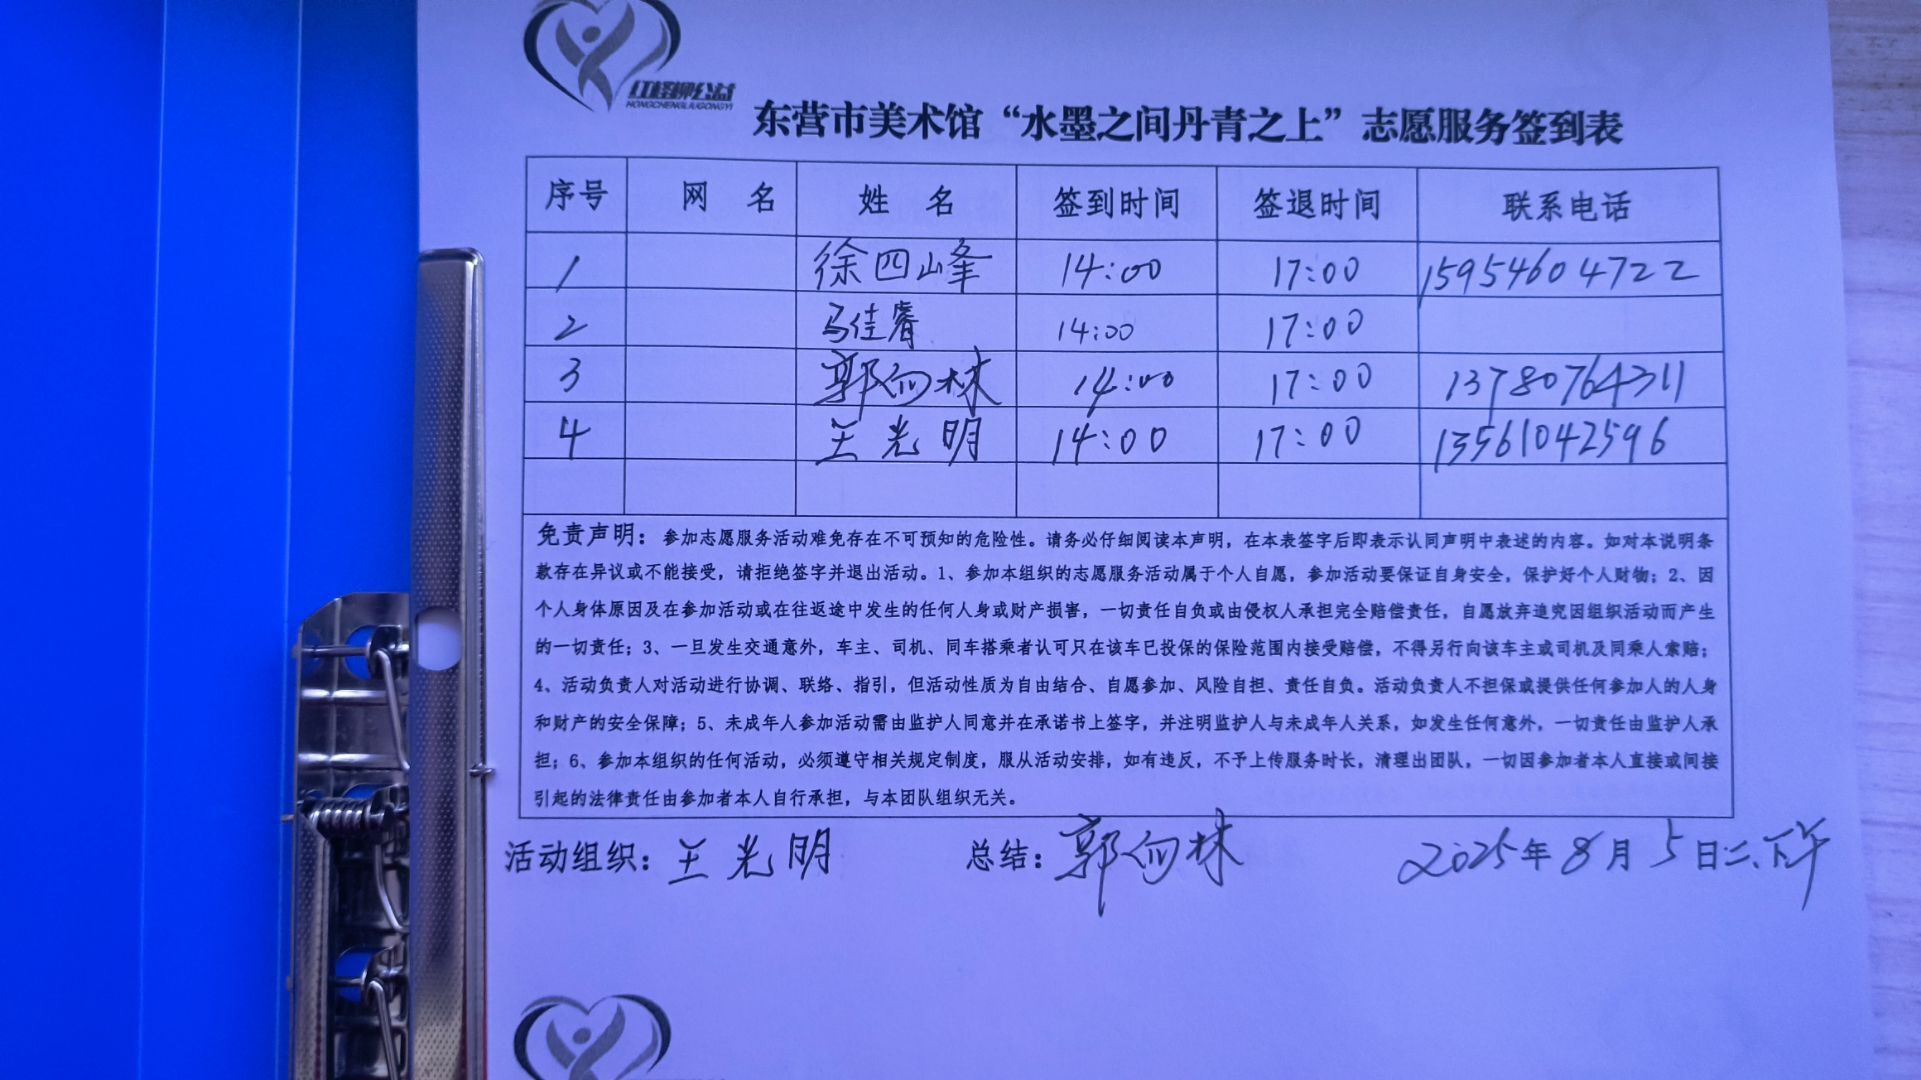 红柽柳公益
HONGCHENGLIUGONGYI
东营市美术馆“水墨之间丹青之上”志愿服务签到表
序号 网 名 姓 名 签到时间 签退时间 联系电话
1 徐四峰 14:00 17:00 15954604722
2 马佳睿 14:00 17:00
3 郭向林 14:00 17:00 13780764311
4 王光明 14:00 17:00 13561042596
免责声明：参加志愿服务活动难免存在不可预知的危险性。请务必仔细阅读本声明，在本表签字后即表示认同声明中表述的内容。如对本说明条
款存在异议或不能接受，请拒绝签字并退出活动。1、参加本组织的志愿服务活动属于个人自愿，参加活动要保证自身安全，保护好个人财物；2、因
个人身体原因及在参加活动或在往返途中发生的任何人身或财产损害，一切责任自负或由侵权人承担完全赔偿责任，自愿放弃追究因组织活动而产生
的一切责任；3、一旦发生交通意外，车主、司机、同车搭乘者认可只在该车已投保的保险范围内接受赔偿，不得另行向该车主或司机及同乘人索赔；
4、活动负责人对活动进行协调、联络、指引，但活动性质为自由结合、自愿参加、风险自担、责任自负。活动负责人不担保或提供任何参加人的人身
和财产的安全保障；5、未成年人参加活动需由监护人同意并在承诺书上签字，并注明监护人与未成年人关系，如发生任何意外，一切责任由监护人承
担；6、参加本组织的任何活动，必须遵守相关规定制度，服从活动安排，如有违反，不予上传服务时长，清理出团队，一切因参加者本人直接或间接
引起的法律责任由参加者本人自行承担，与本团队组织无关。
活动组织：王光明 总结：郭向林 2025年8月5日二、下午